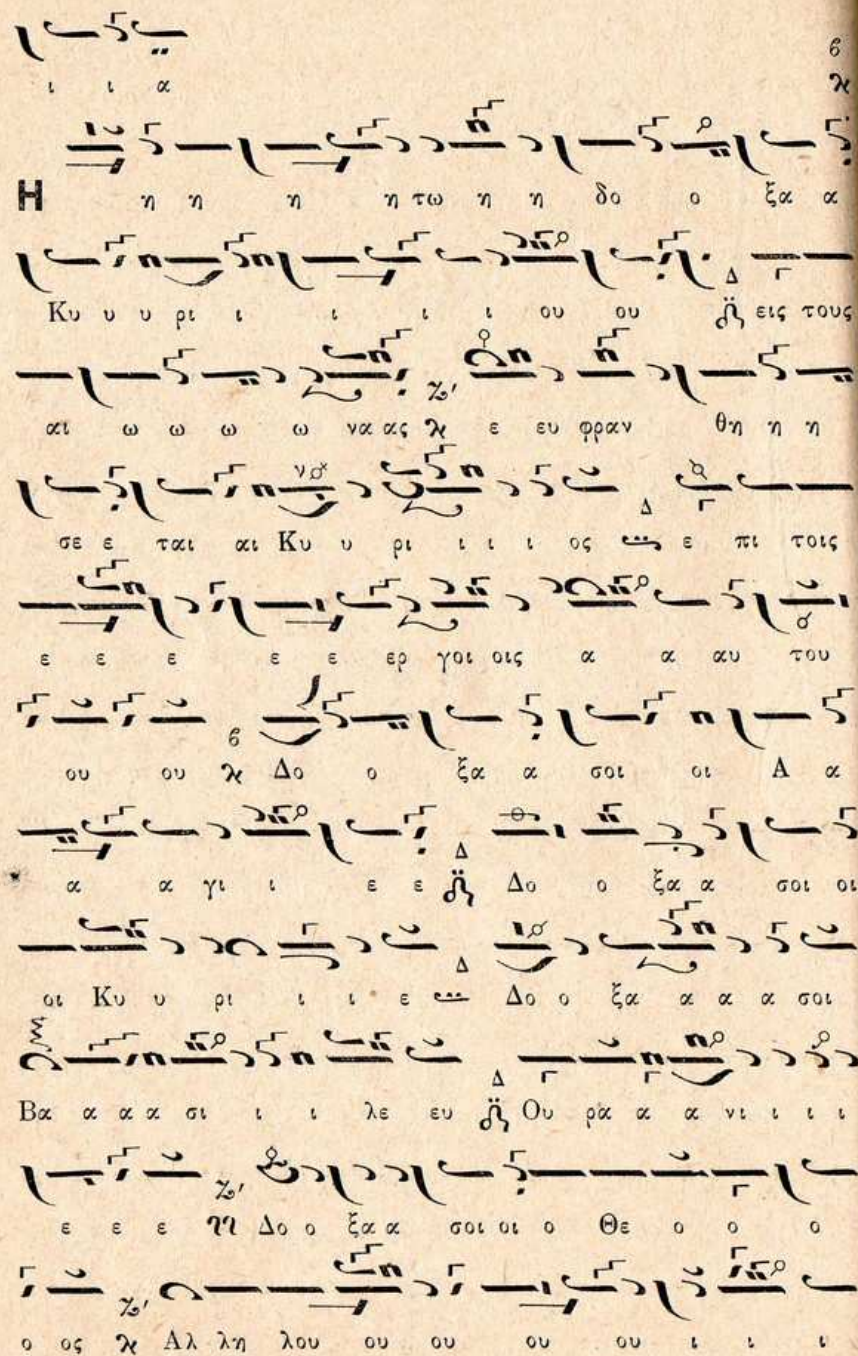 ι ι α
Η η η η η τω η η δο ο ξα α
Κυ υ υ ρι ι ι ι ι ου ου Δ εις τους
αι ω ω ω ω να ας ζ' ε ευ φραν θη η η
σε ε ται αι Κυ υ ρι ι ι ι ος Δ ε πι τοις
ε ε ε ε ε ερ γοι οις α α αυ του
ου ου Δο ο ξα α σοι οι Α α
α α γι ι ε ε Δ Δο ο ξα α σοι οι
οι Κυ υ ρι ι ι ε Δ Δο ο ξα α α α σοι
Βα α α α σι ι ι λε ευ Δ Ου ρα α α νι ι ι ι
ε ε ε ζ' Δο ο ξα α σοι οι ο Θε ο ο ο
ο ος ζ' Αλ λη λου ου ου ου ου ι ι ι